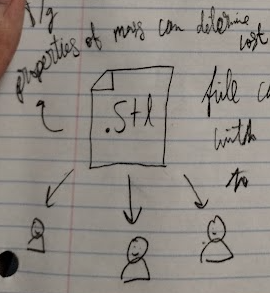 $/g
properties of mass can determine cost
.stl
file
with
to